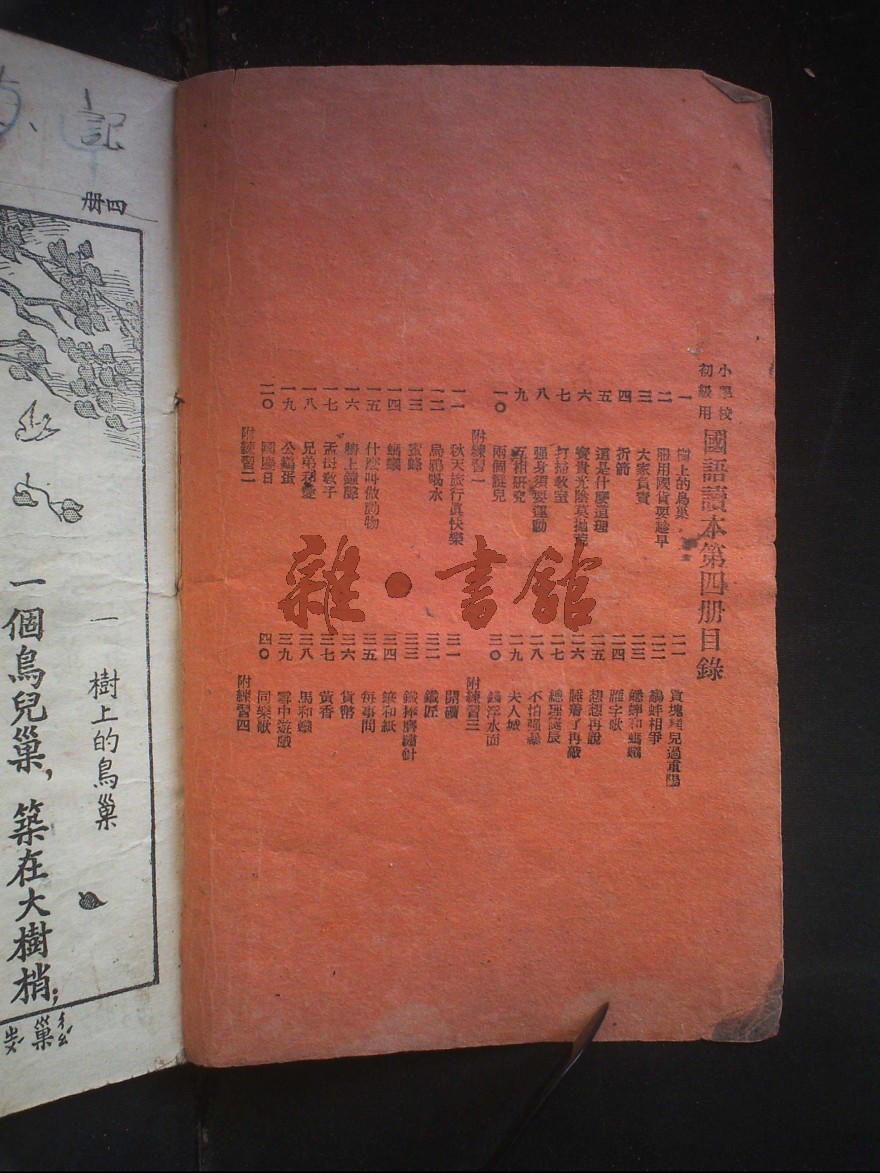 小學校
初級用
國語讀本第四冊目錄
一 樹上的鳥巢
二 服用國貨要趁早
三 大家負責
四 折箭
五 這是什麼道理
六 寶貴光陰莫拋荒
七 打掃教室
八 強身須要運動
九 互相研究
一〇 兩個誕兒
附練習一
一一 秋天旅行真快樂
一二 烏鴉喝水
一三 蜜蜂
一四 螞蟻
一五 什麼叫做動物
一六 樓上鐘聲
一七 孟母教子
一八 兄弟和愛
一九 公雞蛋
二〇 國慶日
附練習二
二一 貨塊糕兒過重陽
二二 鷸蚌相爭
二三 蟋蟀和螞蟻
二四 雁字歌
二五 想想再說
二六 睡着了再敲
二七 總理誕辰
二八 不怕強暴
二九 夫人城
三〇 鍼浮水面
附練習三
三一 開礦
三二 鐵匠
三三 鐵棒磨繡針
三四 筆和紙
三五 每事問
三六 貨幣
三七 黃香
三八 馬和蟻
三九 雪中遊戲
四〇 同樂歌
附練習四
雜·書館
記
四册
一 樹上的鳥巢
一個鳥兒巢，築在大樹梢；
巢